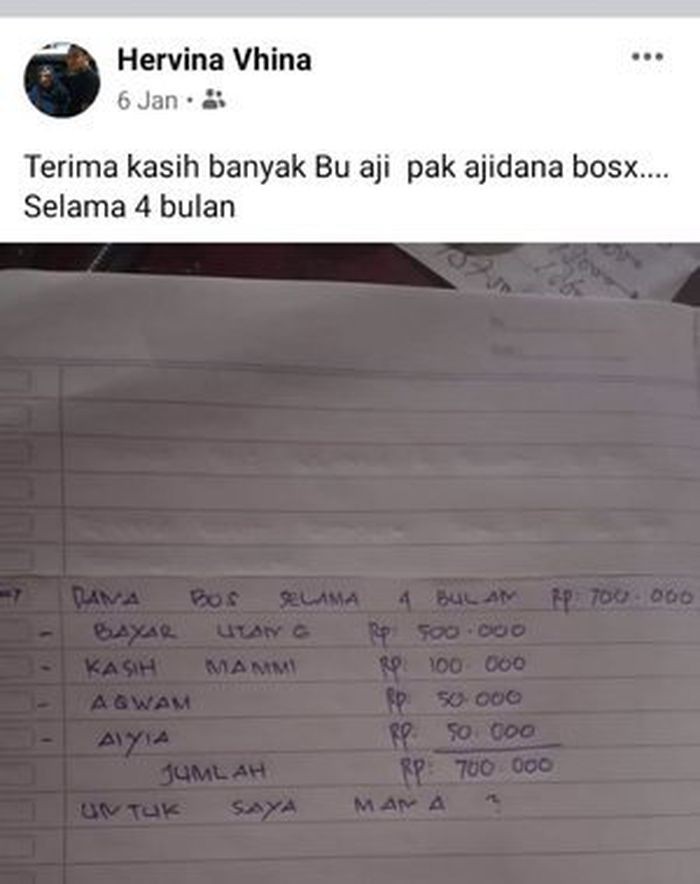 Hervina Vhina
6 Jan
Terima kasih banyak Bu aji pak ajidana bosx....
Selama 4 bulan
DANA BOS SELAMA 4 BULAN RP: 700.000
- BAYAR UTANG Rp: 500.000
- KASIH MAMMI RP: 100.000
- AQWAM RP: 50.000
- AIYIA RP: 50.000
JUMLAH RP: 700.000
UNTUK SAYA MANA ?